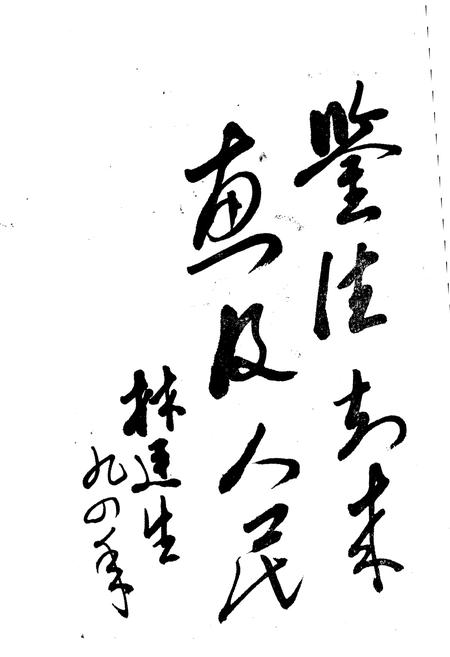 鉴往知来
惠及人民
林逢生
九四年